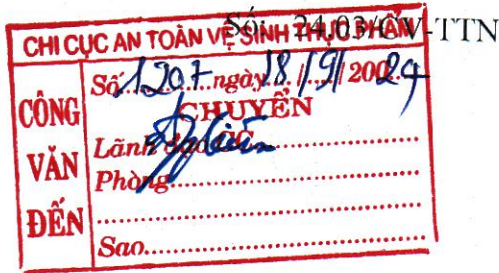 Số: 24.03/CV-TTN
CHI CỤC AN TOÀN VỆ SINH THỰC PHẨM
CÔNG VĂN ĐẾN
Số 1207 ngày 18/9/2024
CHUYỂN
Lãnh đạo CC
Phòng
Sao